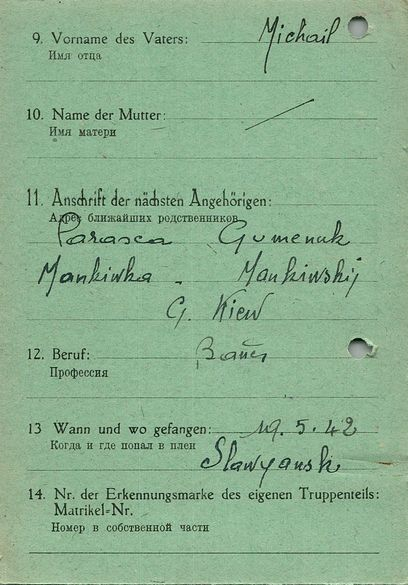 9. Vorname des Vaters: Michail
Имя отца
10. Name der Mutter: /
Имя матери
11. Anschrift der nächsten Angehörigen:
Адрес ближайших родственников
Parasca Gumenuk
Mankiwka - Mankiwskij
G. Kiew
12. Beruf: Bauer
Профессия
13 Wann und wo gefangen: 19. 5. 42
Когда и где попал в плен
Slawyansk
14. Nr. der Erkennungsmarke des eigenen Truppenteils:
Matrikel-Nr.
Номер в собственной части